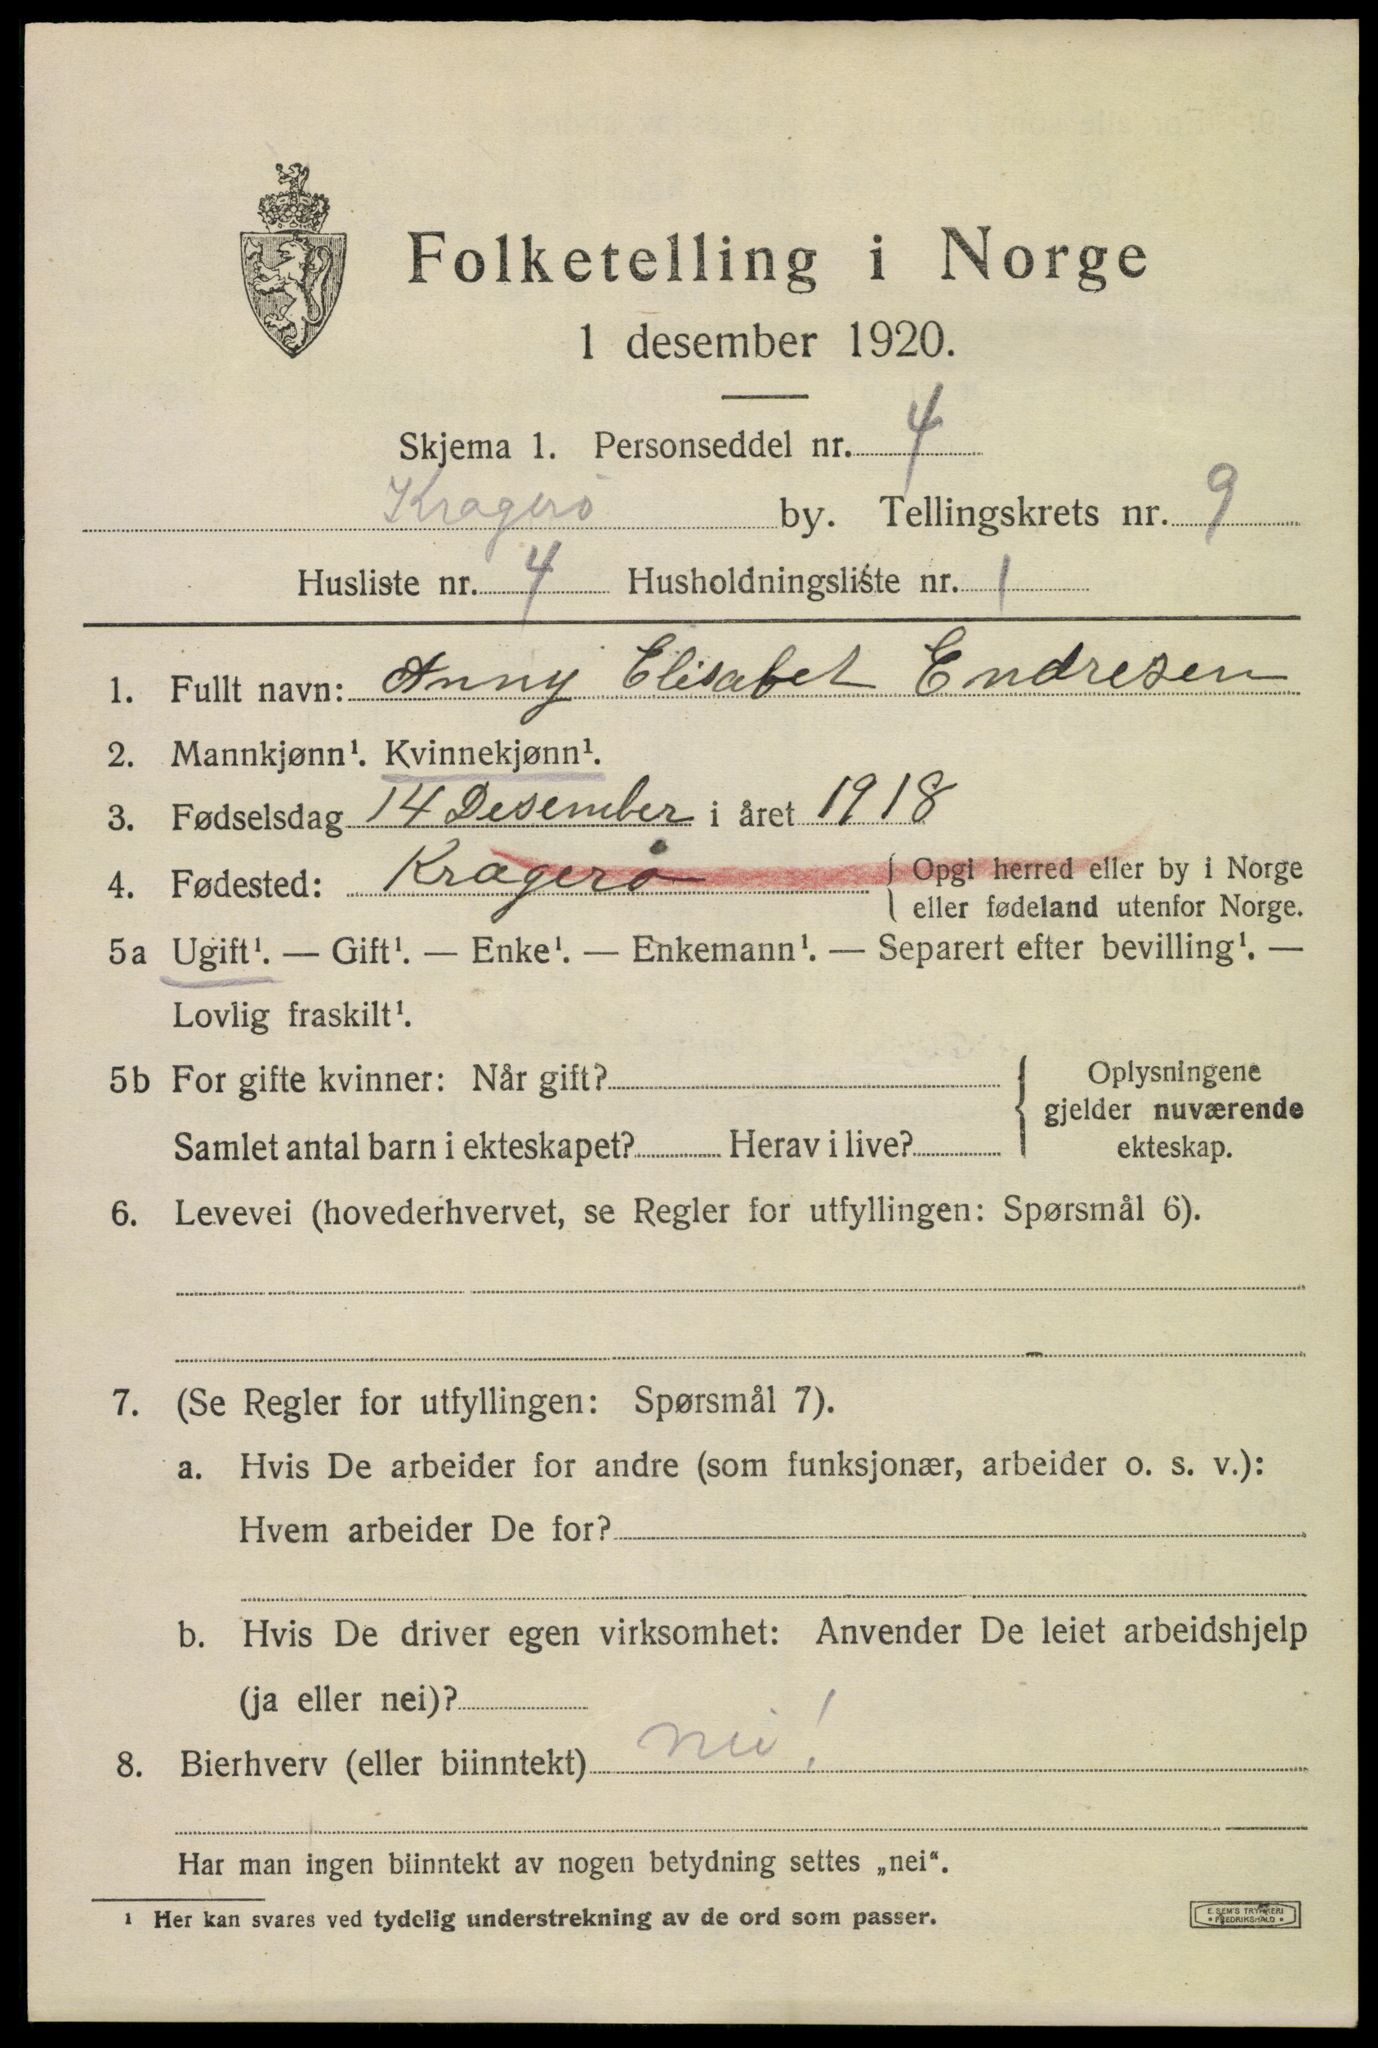 Folketelling i Norge
1 desember 1920.
Skjema 1. Personseddel nr. 4
Kragerö by. Tellingskrets nr. 9
Husliste nr. 4 Husholdningsliste nr. 1
1. Fullt navn: Anny Elisabet Endresen
2. Mannkjønn¹. Kvinnekjønn¹.
3. Fødselsdag 14 Desember i året 1918
4. Fødested: Kragerø { Opgi herred eller by i Norge
eller fødeland utenfor Norge.
5a Ugift¹. — Gift¹. — Enke¹. — Enkemann¹. — Separert efter bevilling¹. —
Lovlig fraskilt¹.
5b For gifte kvinner: Når gift?
Samlet antal barn i ekteskapet? Herav i live?
{ Oplysningene
gjelder nuværende
ekteskap.
6. Levevei (hovederhvervet, se Regler for utfyllingen: Spørsmål 6).
7. (Se Regler for utfyllingen: Spørsmål 7).
a. Hvis De arbeider for andre (som funksjonær, arbeider o. s. v.):
Hvem arbeider De for?
b. Hvis De driver egen virksomhet: Anvender De leiet arbeidshjelp
(ja eller nei)?
8. Bierhverv (eller biinntekt) nei!
Har man ingen biinntekt av nogen betydning settes „nei“.
¹ Her kan svares ved tydelig understrekning av de ord som passer.
E. SEM'S TRYKKERI
• FREDRIKSHALD •